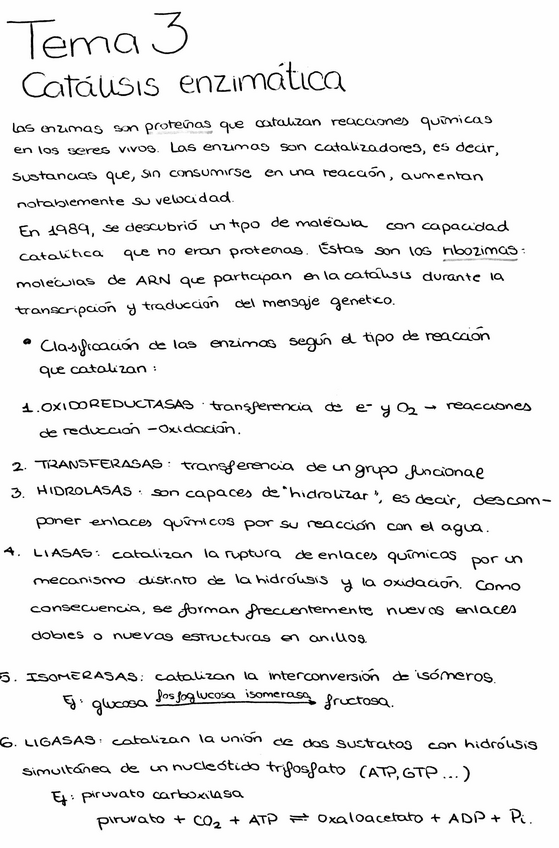 Tema 3
Catálisis enzimática
Las enzimas son proteínas que catalizan reacciones químicas
en los seres vivos. Las enzimas son catalizadores, es decir,
sustancias que, sin consumirse en una reacción, aumentan
notablemente su velocidad.
En 1989, se descubrió un tipo de molécula con capacidad
catalítica que no eran proteínas. Éstas son los ribozimas:
moléculas de ARN que participan en la catálisis durante la
transcripción y traducción del mensaje genetico.
• Clasificación de las enzimas según el tipo de reacción
que catalizan:
1. OXIDOREDUCTASAS: transferencia de e- y O2 → reacciones
de reducción - Oxidación.
2. TRANSFERASAS: transferencia de un grupo funcional
3. HIDROLASAS: son capaces de "hidrolizar", es decir, descom-
poner enlaces químicos por su reacción con el agua.
4. LIASAS: catalizan la ruptura de enlaces químicos por un
mecanismo distinto de la hidrólisis y la oxidación. Como
consecuencia, se forman frecuentemente nuevos enlaces
dobles o nuevas estructuras en anillos.
5. ISOMERASAS: catalizan la interconversión de isómeros.
Ej: glucosa fosfoglucosa isomerasa → fructosa.
6. LIGASAS: catalizan la unión de dos sustratos con hidrólisis
simultánea de un nucleótido trifosfato (ATP, GTP ...)
Ej: piruvato carboxilasa
piruvato + CO2 + ATP ⇌ oxaloacetato + ADP + Pi.